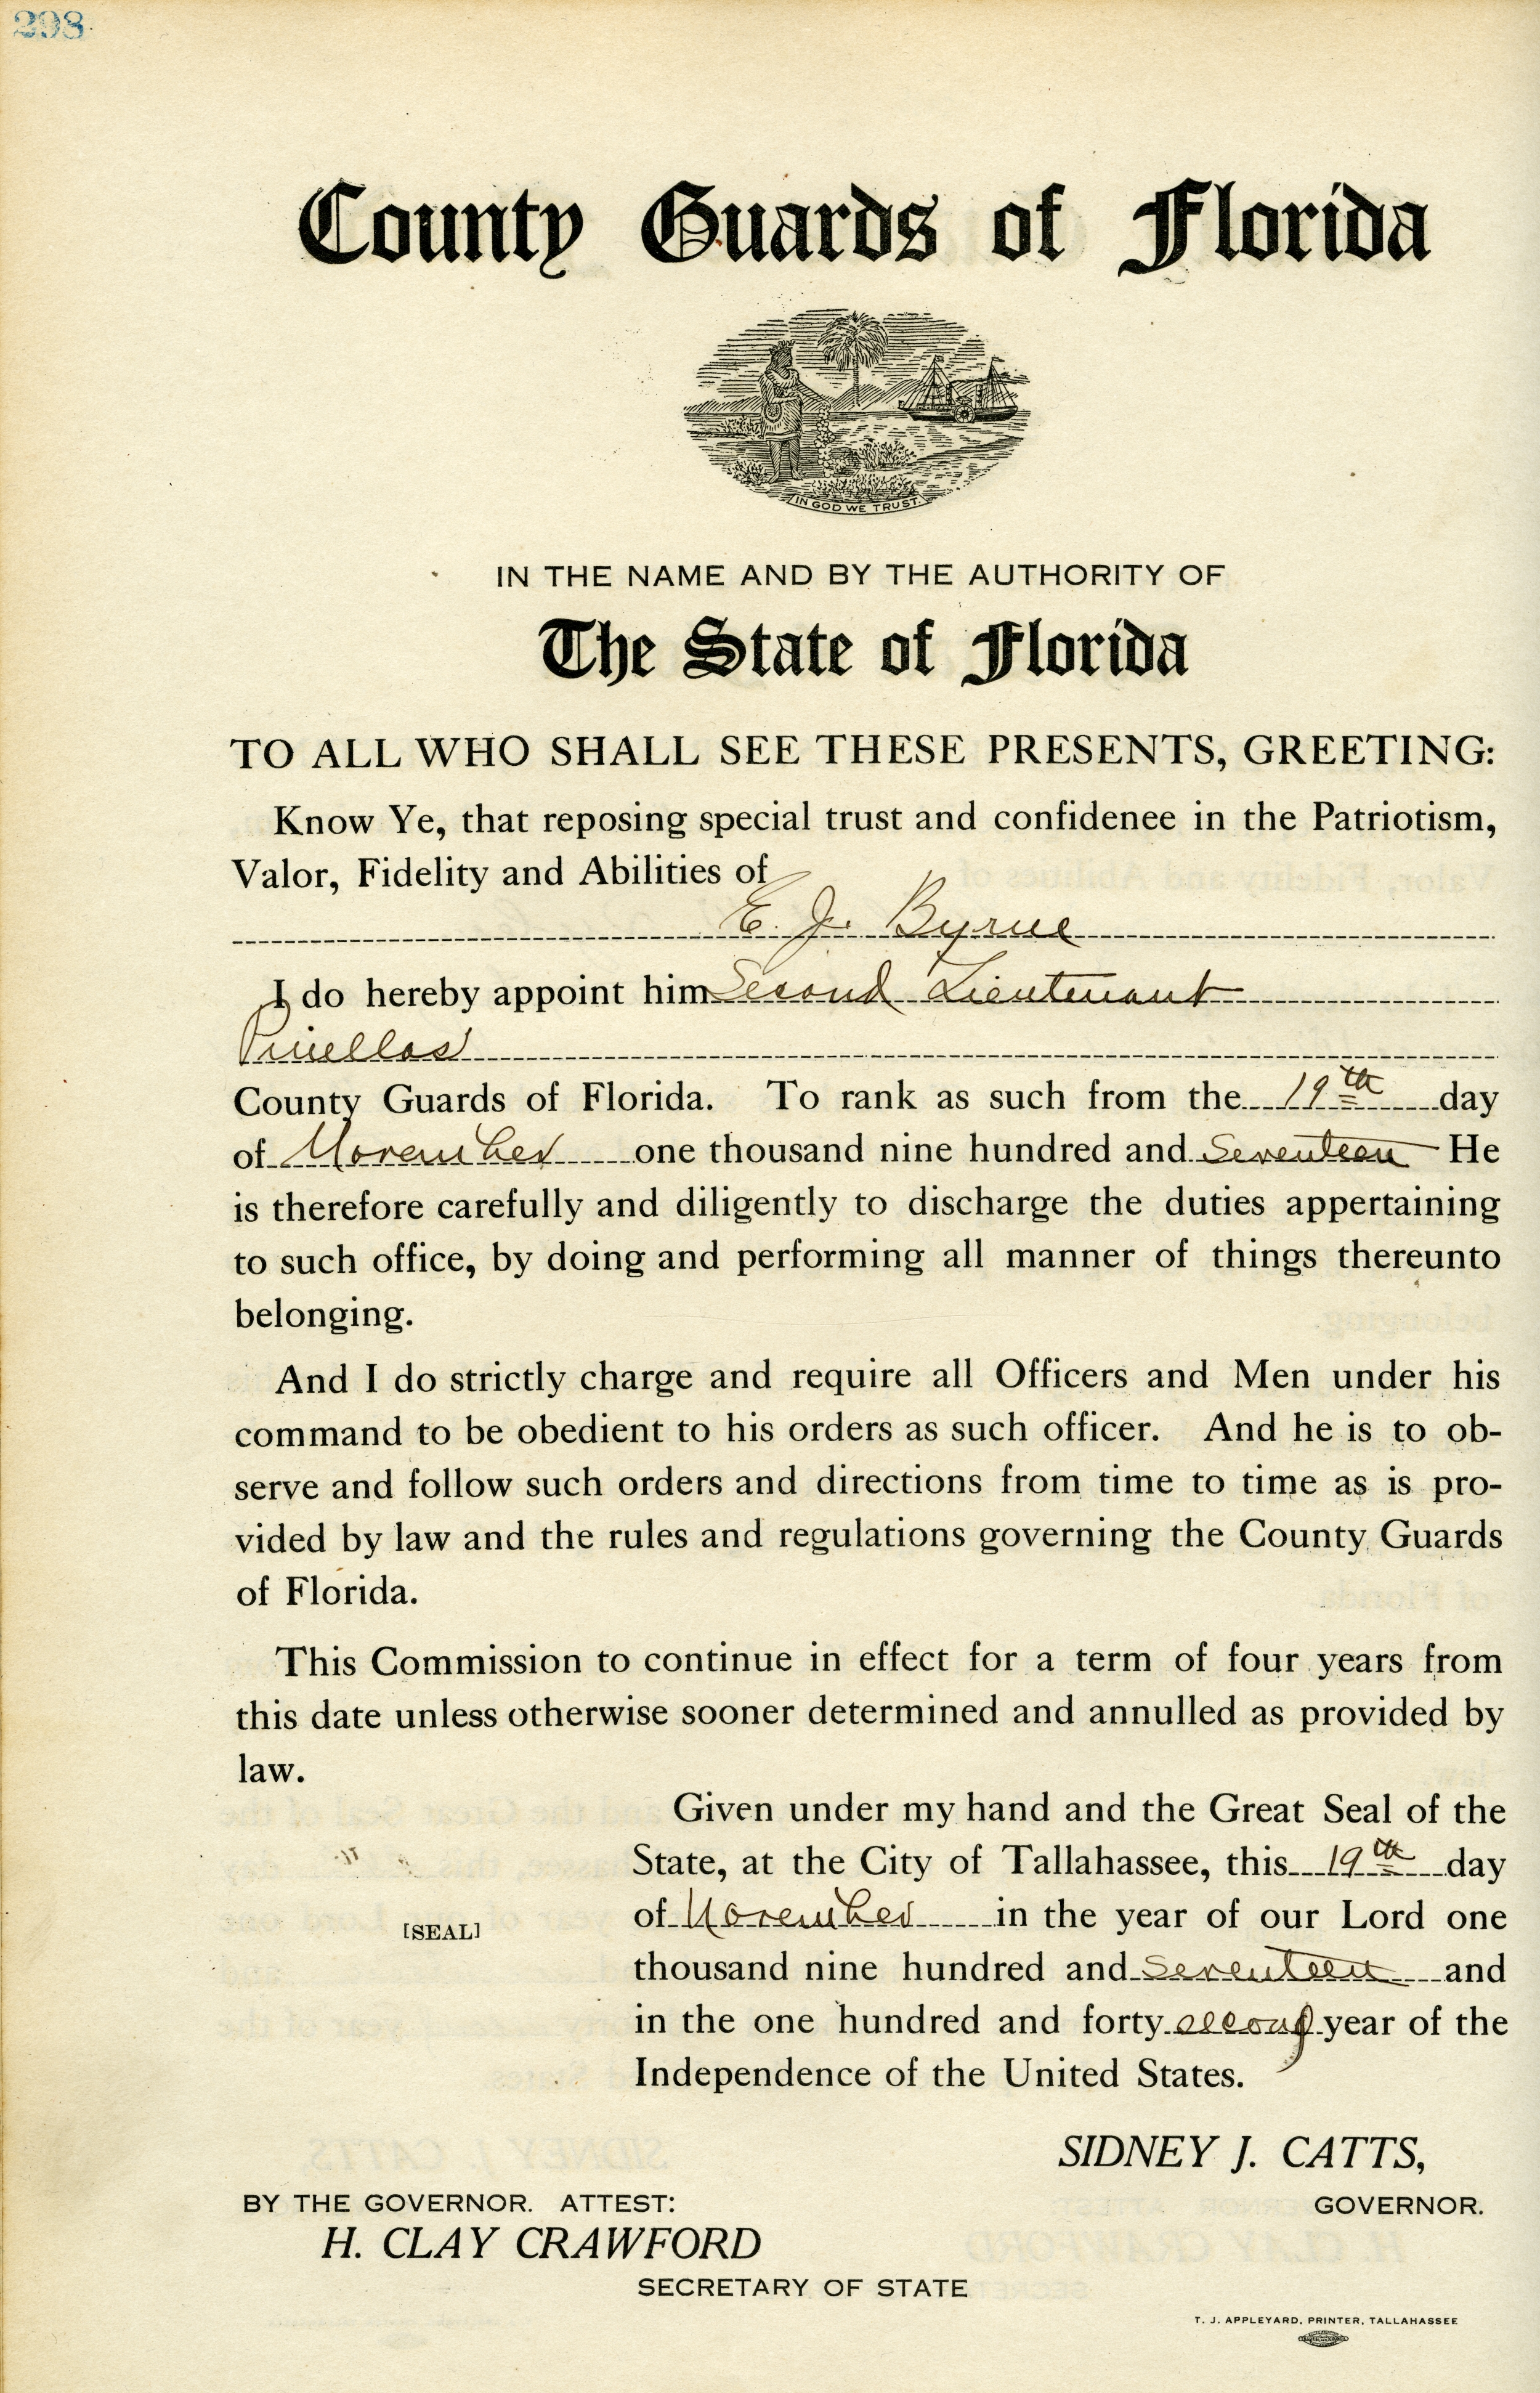 298
County Guards of Florida
IN GOD WE TRUST.
IN THE NAME AND BY THE AUTHORITY OF
The State of Florida
TO ALL WHO SHALL SEE THESE PRESENTS, GREETING:
Know Ye, that reposing special trust and confidenee in the Patriotism,
Valor, Fidelity and Abilities of
E. J. Byrne
I do hereby appoint him Second Lieutenant
Pinellas
County Guards of Florida. To rank as such from the 19th day
of November one thousand nine hundred and Seventeen He
is therefore carefully and diligently to discharge the duties appertaining
to such office, by doing and performing all manner of things thereunto
belonging.
And I do strictly charge and require all Officers and Men under his
command to be obedient to his orders as such officer. And he is to ob-
serve and follow such orders and directions from time to time as is pro-
vided by law and the rules and regulations governing the County Guards
of Florida.
This Commission to continue in effect for a term of four years from
this date unless otherwise sooner determined and annulled as provided by
law.
Given under my hand and the Great Seal of the
State, at the City of Tallahassee, this 19th day
of November in the year of our Lord one
[SEAL]
thousand nine hundred and seventeen and
in the one hundred and forty second year of the
Independence of the United States.
SIDNEY J. CATTS,
GOVERNOR.
BY THE GOVERNOR. ATTEST:
H. CLAY CRAWFORD
SECRETARY OF STATE
T. J. APPLEYARD, PRINTER, TALLAHASSEE